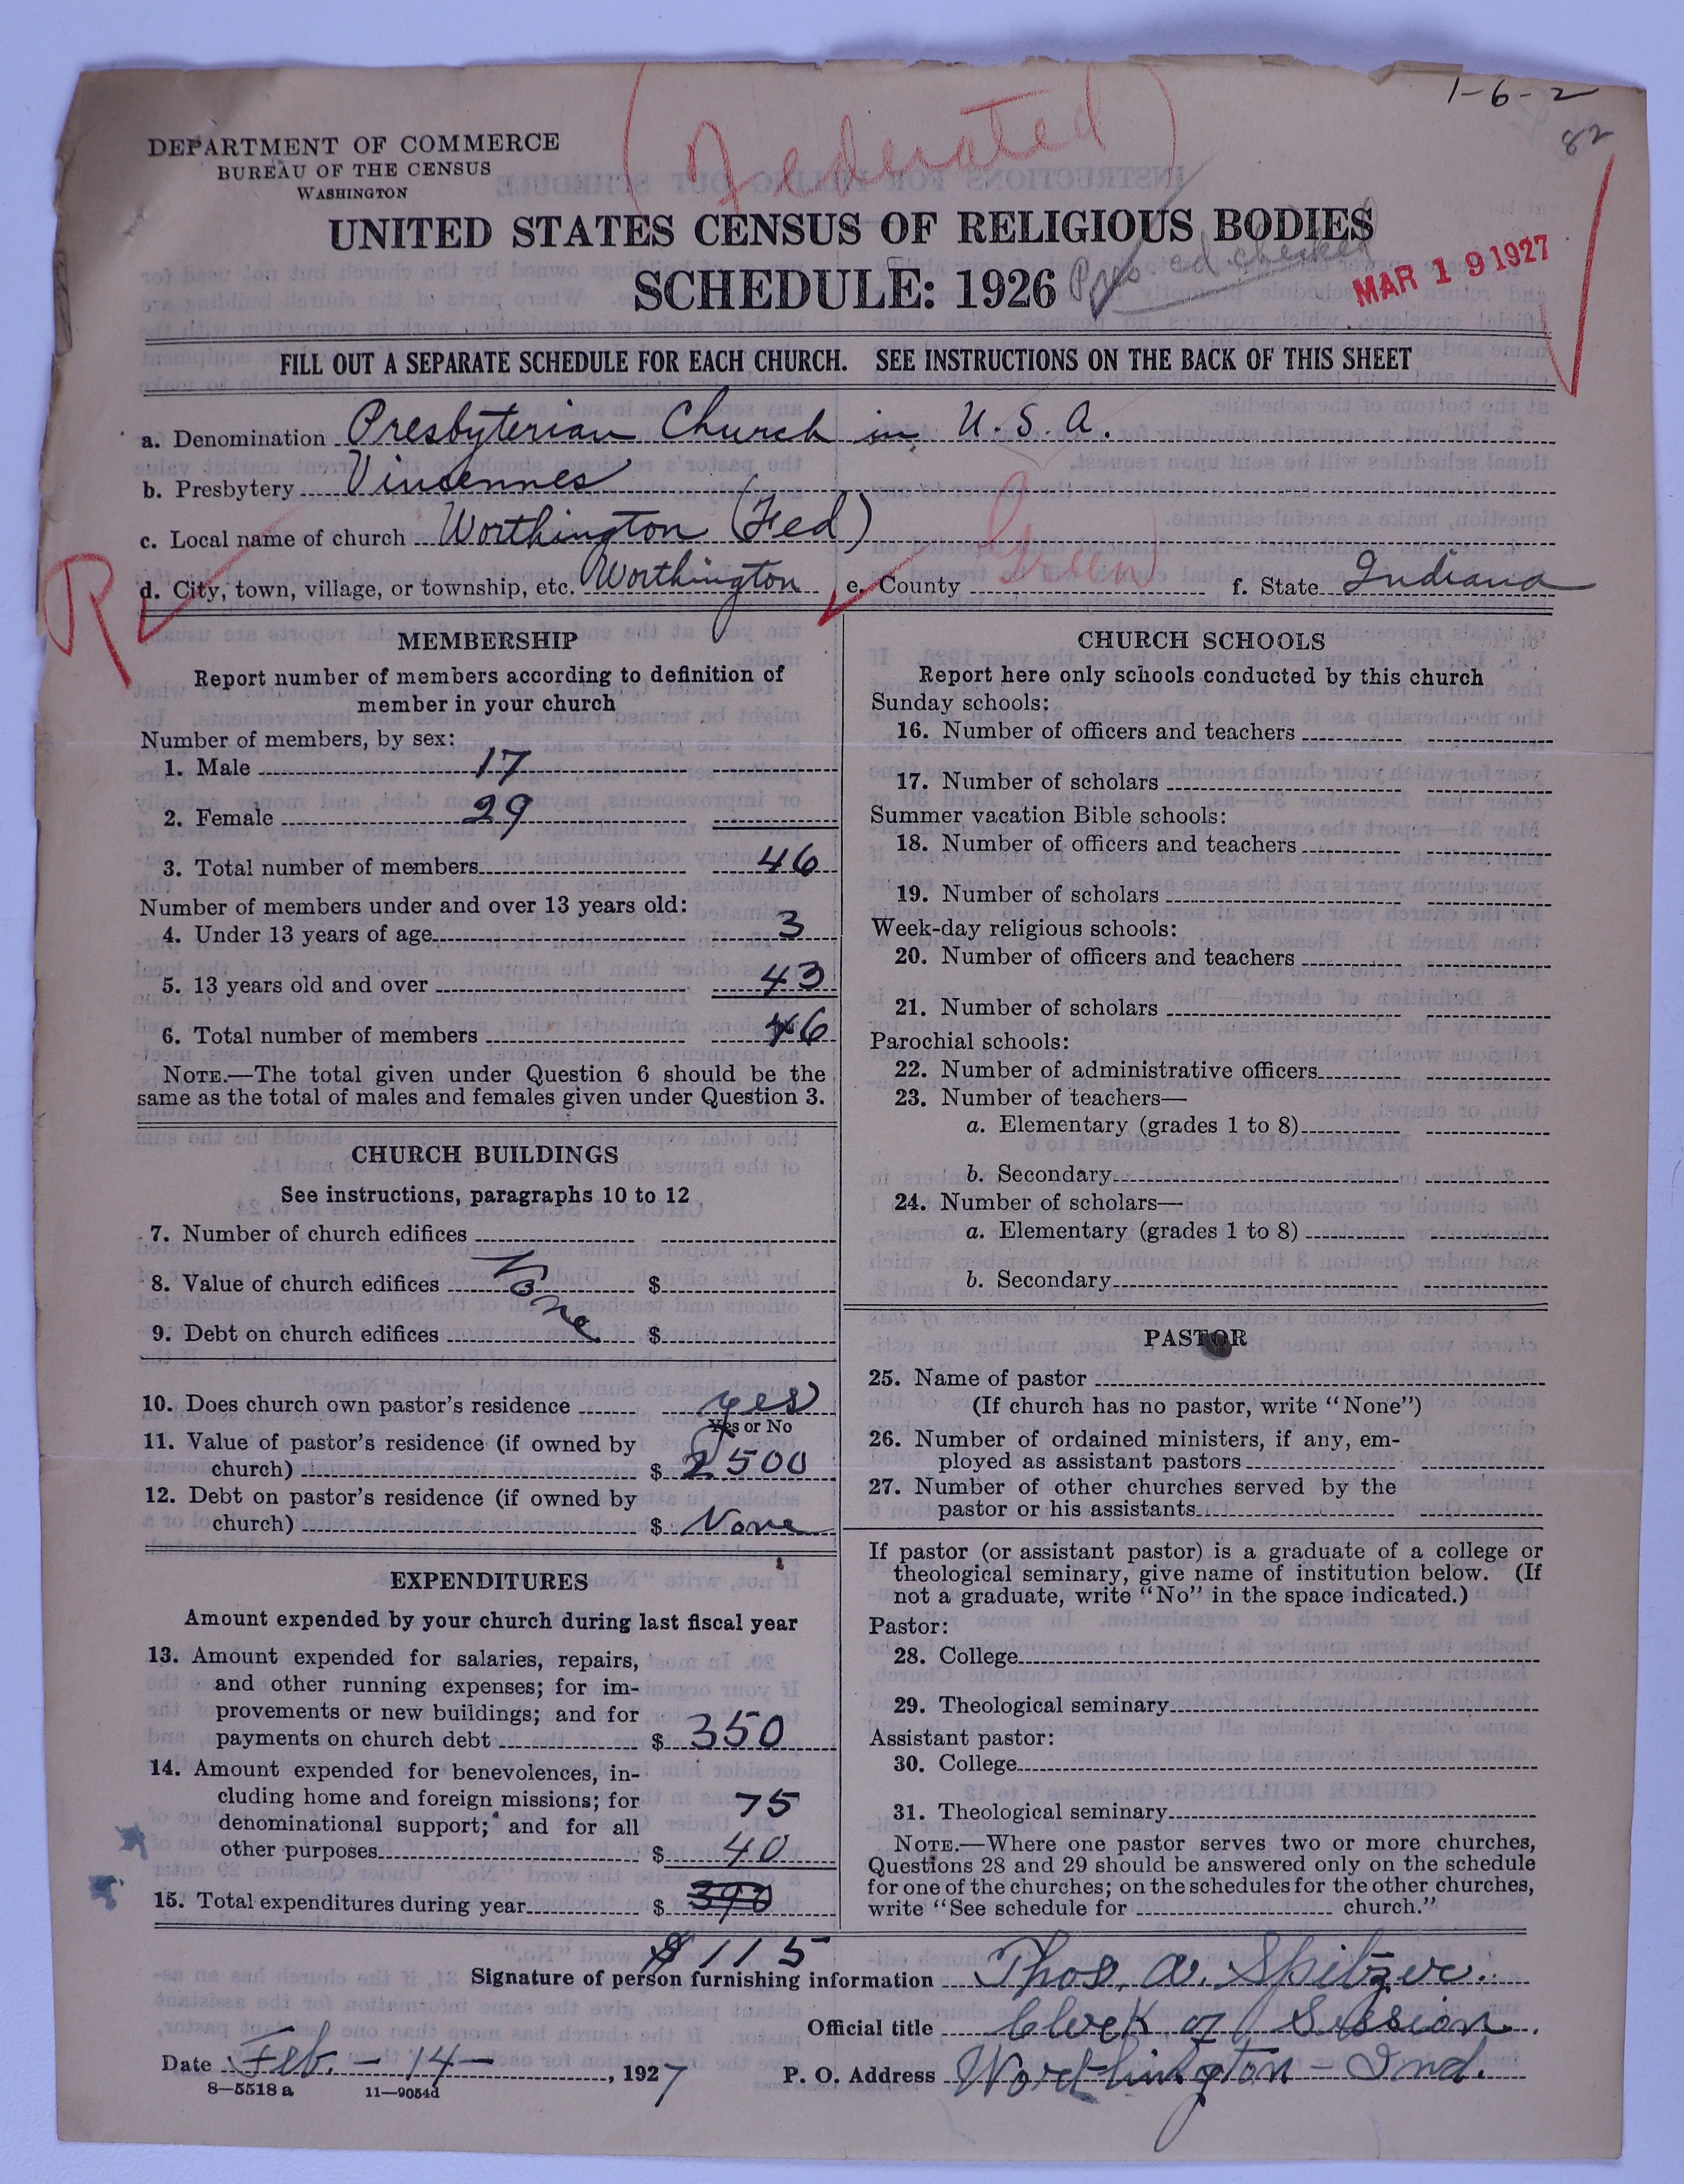 1-6-2
82
(Federated)
DEPARTMENT OF COMMERCE
BUREAU OF THE CENSUS
WASHINGTON
UNITED STATES CENSUS OF RELIGIOUS BODIES
SCHEDULE: 1926
checked
MAR 19 1927
FILL OUT A SEPARATE SCHEDULE FOR EACH CHURCH. SEE INSTRUCTIONS ON THE BACK OF THIS SHEET
a. Denomination Presbyterian Church in U.S.A.
b. Presbytery Vincennes
c. Local name of church Worthington (Fed)
R d. City, town, village, or township, etc. Worthington e. County Green f. State Indiana
MEMBERSHIP
Report number of members according to definition of
member in your church
Number of members, by sex:
1. Male 17
2. Female 29
3. Total number of members 46
Number of members under and over 13 years old:
4. Under 13 years of age 3
5. 13 years old and over 43
6. Total number of members 46
NOTE.—The total given under Question 6 should be the
same as the total of males and females given under Question 3.
CHURCH BUILDINGS
See instructions, paragraphs 10 to 12
7. Number of church edifices
8. Value of church edifices $
None
9. Debt on church edifices $
10. Does church own pastor's residence yes
Yes or No
11. Value of pastor's residence (if owned by
church) $ 2500
12. Debt on pastor's residence (if owned by
church) $ None
EXPENDITURES
Amount expended by your church during last fiscal year
13. Amount expended for salaries, repairs,
and other running expenses; for im-
provements or new buildings; and for
payments on church debt $ 350
14. Amount expended for benevolences, in-
cluding home and foreign missions; for
75
denominational support; and for all
other purposes $ 40
15. Total expenditures during year $ 390
$115
CHURCH SCHOOLS
Report here only schools conducted by this church
Sunday schools:
16. Number of officers and teachers
17. Number of scholars
Summer vacation Bible schools:
18. Number of officers and teachers
19. Number of scholars
Week-day religious schools:
20. Number of officers and teachers
21. Number of scholars
Parochial schools:
22. Number of administrative officers
23. Number of teachers—
a. Elementary (grades 1 to 8)
b. Secondary
24. Number of scholars—
a. Elementary (grades 1 to 8)
b. Secondary
PASTOR
25. Name of pastor
(If church has no pastor, write "None")
26. Number of ordained ministers, if any, em-
ployed as assistant pastors
27. Number of other churches served by the
pastor or his assistants
If pastor (or assistant pastor) is a graduate of a college or
theological seminary, give name of institution below. (If
not a graduate, write "No" in the space indicated.)
Pastor:
28. College
29. Theological seminary
Assistant pastor:
30. College
31. Theological seminary
NOTE.—Where one pastor serves two or more churches,
Questions 28 and 29 should be answered only on the schedule
for one of the churches; on the schedules for the other churches,
write "See schedule for church."
Signature of person furnishing information Thos. A. Spitzer.
Official title Clerk of Session.
Date Feb. - 14 -, 1927 P. O. Address Worthington - Ind.
8—5518 a 11—9054d